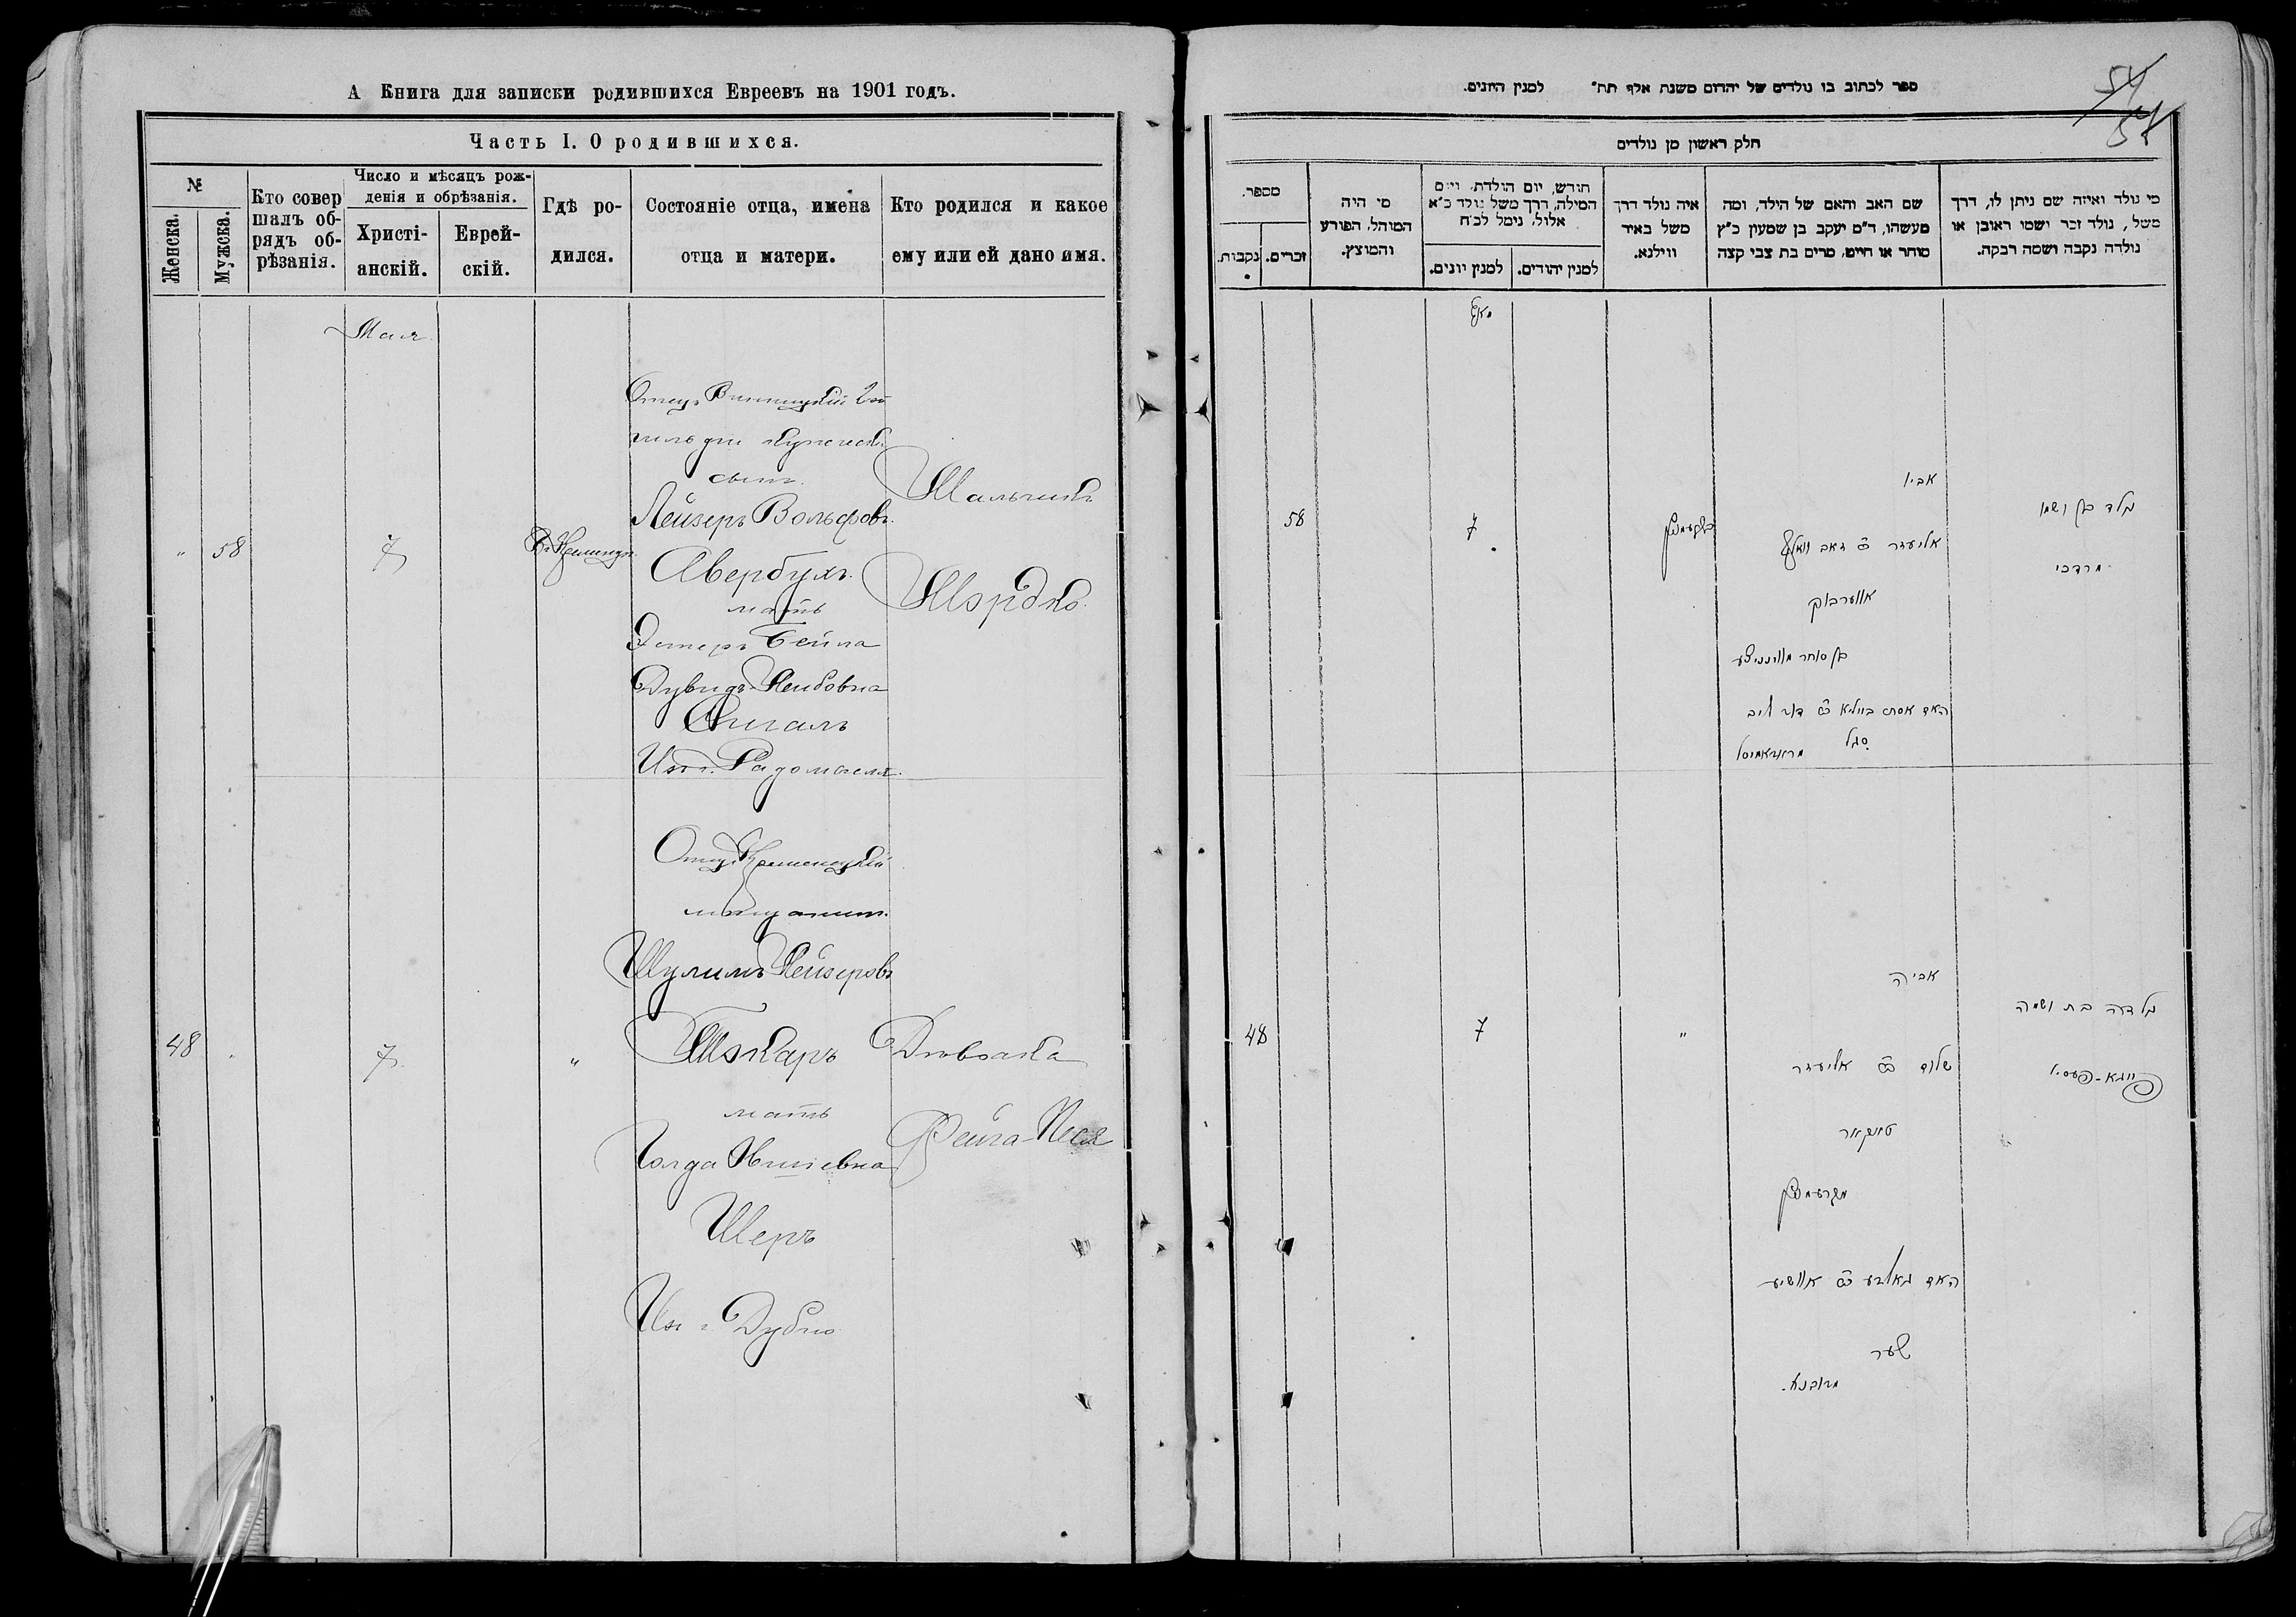 А Книга для записки родившихся Евреевъ на 1901 годъ.
Часть I. О родившихся.
№
Женска.
Мужска.
Кто совер
шалъ об-
рядъ об-
рѣзанія.
Число и мѣсяцъ рож-
денія и обрѣзанія.
Христі-
анскій.
Еврей-
скій.
Гдѣ ро-
дился.
Состояніе отца, имена
отца и матери.
Кто родился и какое
ему или ей дано имя.
Мая
" 58
7
Отецъ Винницкій 2ой
гильдіи
сынъ
Лейзеръ Вольфовъ
Авербухъ
мать
Эстеръ Бейла
Дувидъ-Лейбовна
Сигалъ
Изъ г. Радомысля
Мальчикъ
Мордко
48
7
"
Отецъ Кременецкій
мѣщанинъ
Шулимъ Лейзеровъ
Токаръ
мать
Голда
Шеръ
Изъ г Дубно
Дѣвочка
Фейга-Песя
ספר לכתוב בו נולדים של יהדים משנת אלף תת״ למנין היונים.
54
חלק ראשון מן נולדים
מספר.
נקבות.
זכרים.
מי היה
המוהל, הפורע
והמוצץ.
חודש, יום הולדת, ויום
המילה, דרך משל נולד כ״א
אלול, נימל לכ״ח
למנין יונים.
למנין יהודים.
איה נולד דרך
משל באיר
ווילנא.
שם האב והאם של הילד, ומה
מעשהו, ד״מ יעקב בן שמעון כ״ץ
סוחר או חייט, מרים בת צבי קצה
מי נולד ואיזה שם ניתן לו, דרך
משל, נולד זכר ושמו ראובן או
נולדה נקבה ושמה רבקה.
מאי
58
7
אביו
אליעזר
אווערבוך
בן סוחר
האם אסתר ביילא
סגל
נולד בן ושמו
מרדכי
48
7
"
אביה
שלום אליעזר
טאקאר
מקרעמניץ
האם גאלדע
שער
מדובנא.
נולדה בת ושמה
פייגא-פעסיו